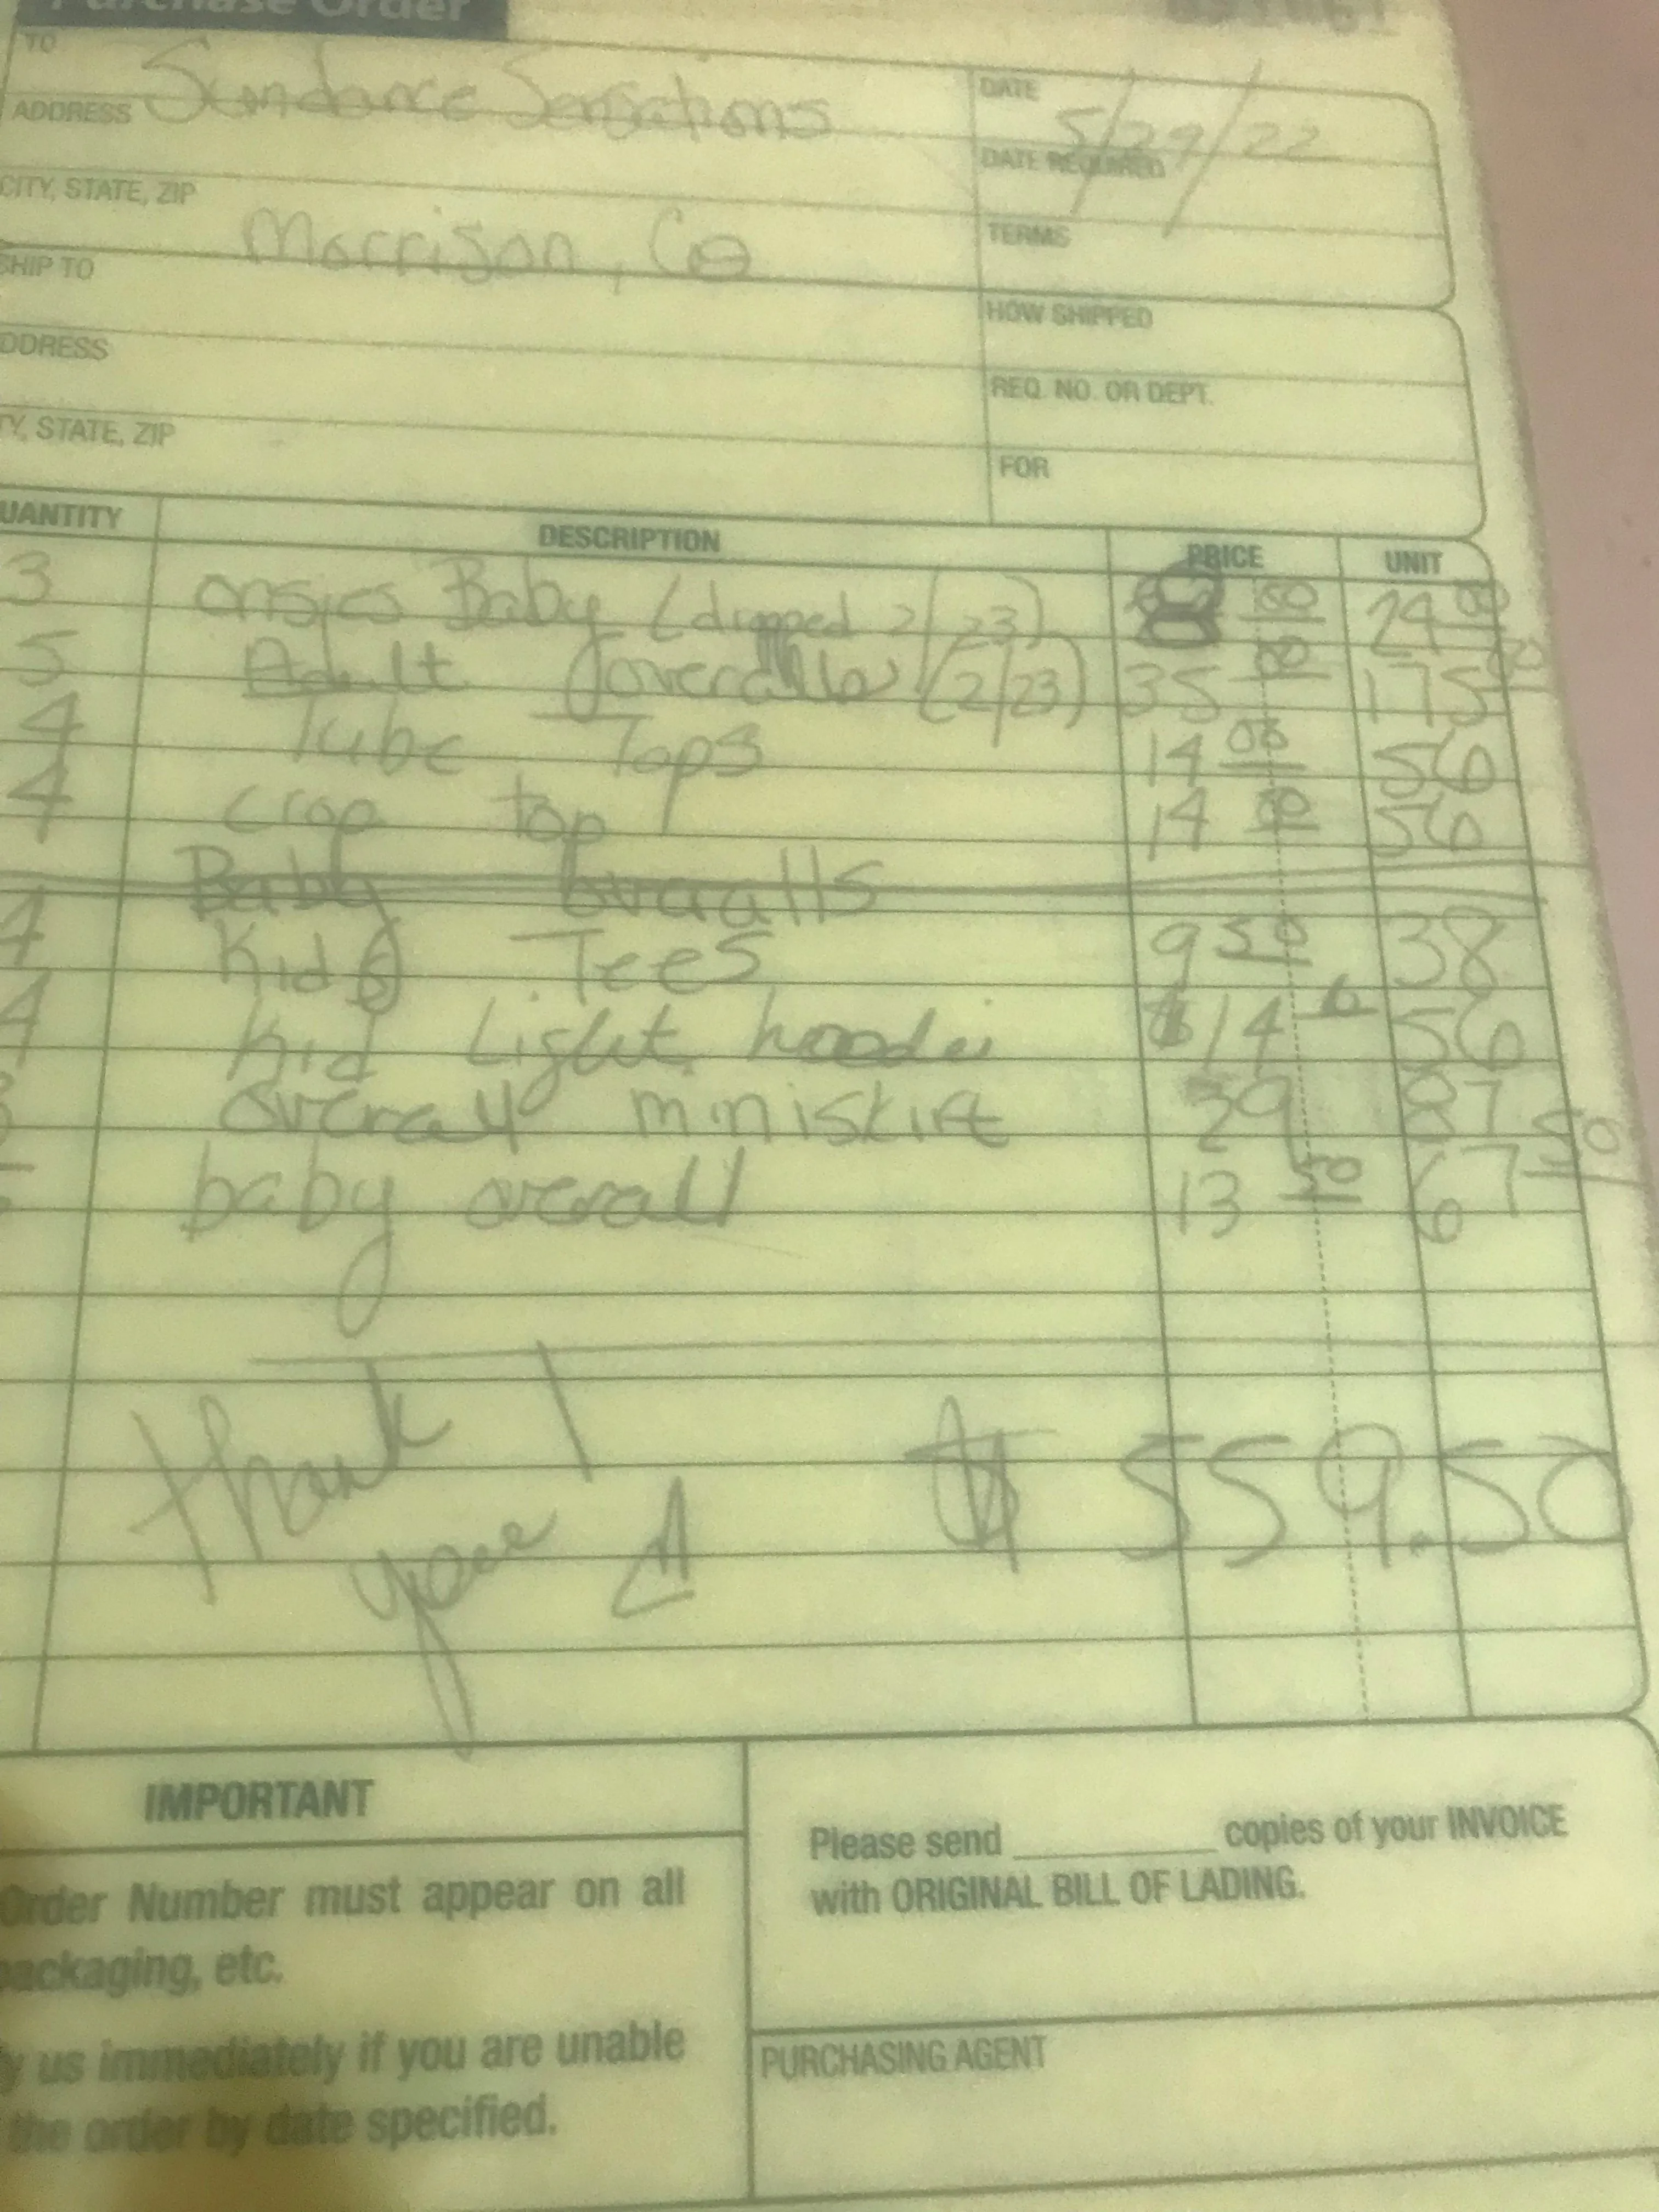 Purchase Order
TO
Sundance Sensations
DATE
5/29/22
ADDRESS
DATE REQUIRED
CITY, STATE, ZIP
Morrison, Co
TERMS
SHIP TO
HOW SHIPPED
ADDRESS
REQ. NO. OR DEPT.
TY, STATE, ZIP
FOR
UANTITY DESCRIPTION PRICE UNIT
3 onsies Baby (dropped 2/23) 8 00 24 00
5 Adult overalls (2/23) 35 00 175 00
4 Tube Tops 14 00 56
4 crop top 14 00 56
Baby overalls
4 Kids Tees 9 50 38
4 Kid Light hoodie $14 56
3 overall miniskirt 29 87
baby overall 13 50 67 50
Thank you!
$ 559.50
IMPORTANT
Order Number must appear on all
packaging, etc.
y us immediately if you are unable
the order by date specified.
Please send ________ copies of your INVOICE
with ORIGINAL BILL OF LADING.
PURCHASING AGENT